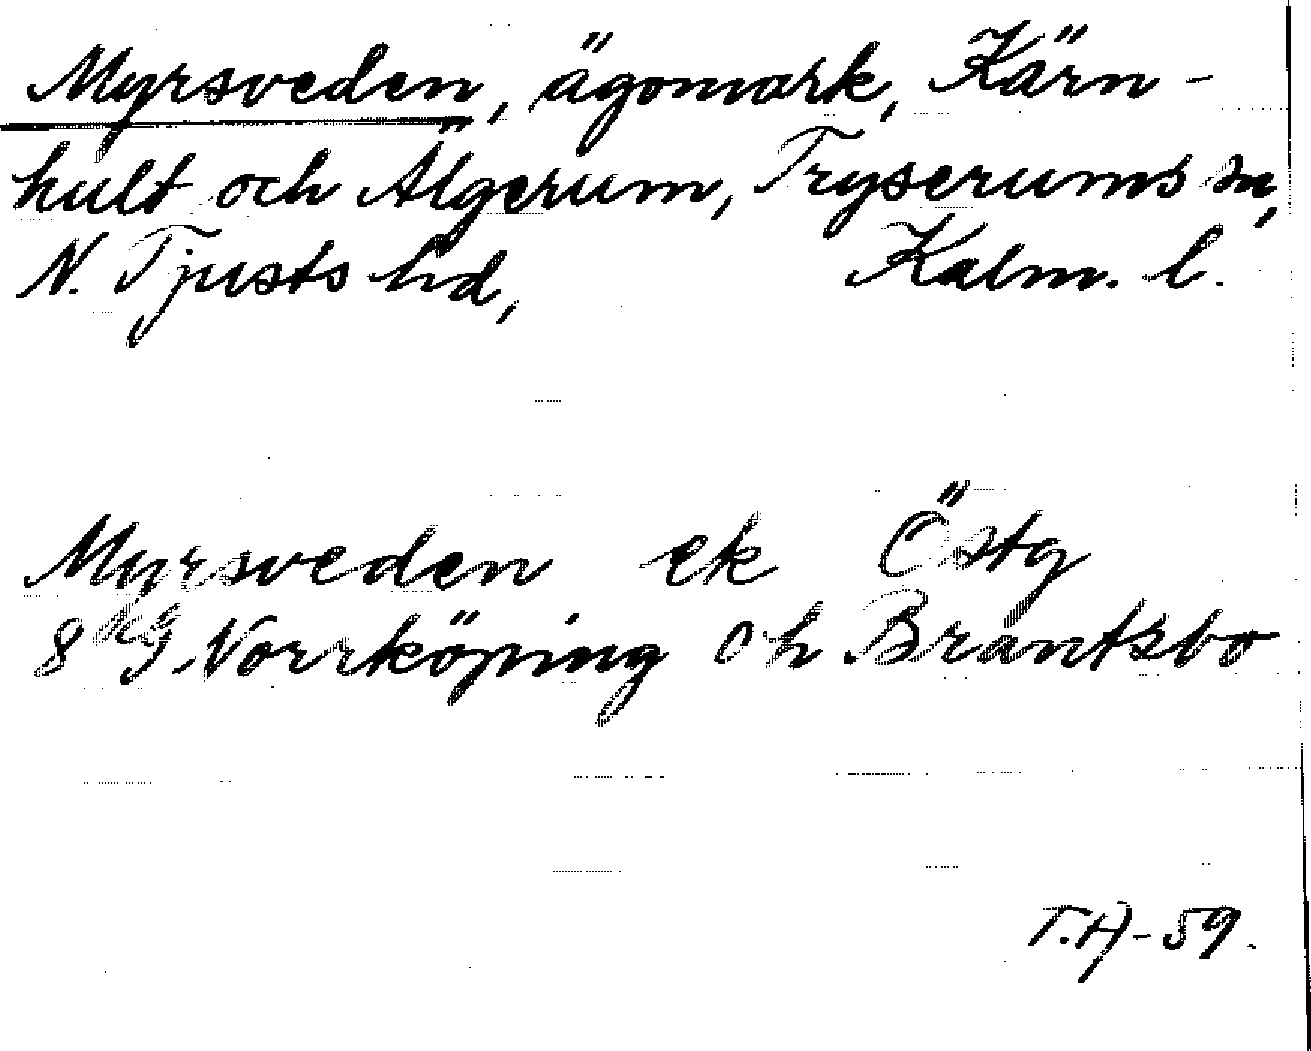 Myrsveden, ägomark, Kärn-
hult och Älgerum, Tryserums sn,
N. Tjusts hd, Kalm. l.
Myrsveden ek Östg
8 G. Norrköping och Brantsbo
T.H-59.